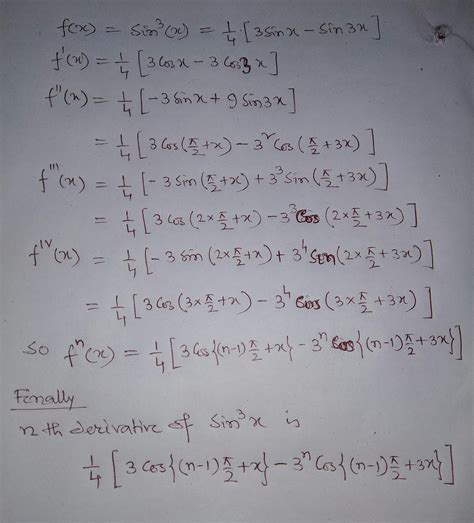 f(x) = Sin³(x) = 1/4 · [3 Sin x − Sin 3x]
f'(x) = 1/4 [3 Cos x − 3 Cos 3x]
f''(x) = 1/4 [−3 Sin x + 9 Sin 3x]
= 1/4 [3 Cos (π/2 + x) − 3² Cos (π/2 + 3x)]
f'''(x) = 1/4 [−3 Sin (π/2 + x) + 3³ Sin (π/2 + 3x)]
= 1/4 [3 Cos (2×π/2 + x) − 3³ Cos (2×π/2 + 3x)]
f^IV(x) = 1/4 [−3 Sin (2×π/2 + x) + 3⁴ Sin (2×π/2 + 3x)]
= 1/4 [3 Cos (3×π/2 + x) − 3⁴ Cos (3×π/2 + 3x)]
So fⁿ(x) = 1/4 [3 Cos{(n-1)π/2 + x} − 3ⁿ Cos{(n-1)π/2 + 3x}]
Finally
n th derivative of Sin³x is
1/4 [3 Cos{(n-1)π/2 + x} − 3ⁿ Cos{(n-1)π/2 + 3x}]